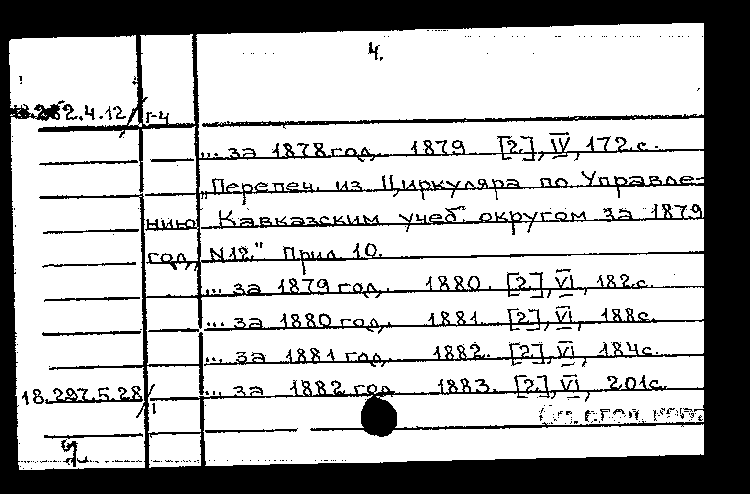 4.
2.4.12/г-4
... за 1878 год. 1879 [2], IV, 172 с.
„Перепеч. из Циркуляра по Управле=
нию Кавказским учеб. округом за 1879
год, N12." Прил. 10.
... за 1879 год. 1880. [2], VI, 182 с.
... за 1880 год. 1881. [2], VI, 188 с.
... за 1881 год. 1882. [2], VI, 184 с.
18.297.5.28/1 ... за 1882 год 1883. [2], VI, 201 с.
См. след. карт